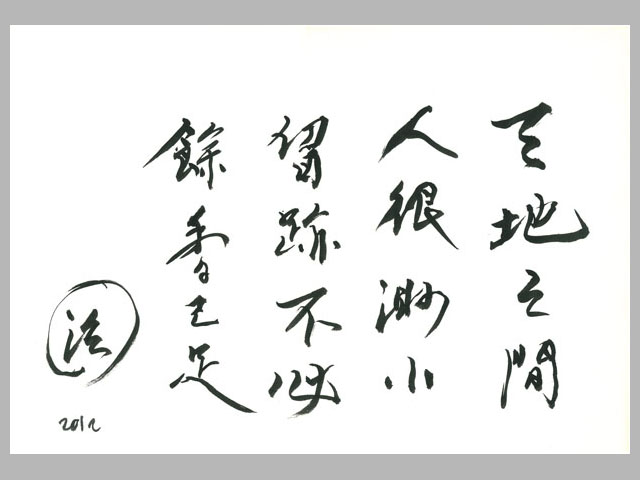 天地之間
人很渺小
留跡不必
餘香已足
法
2012